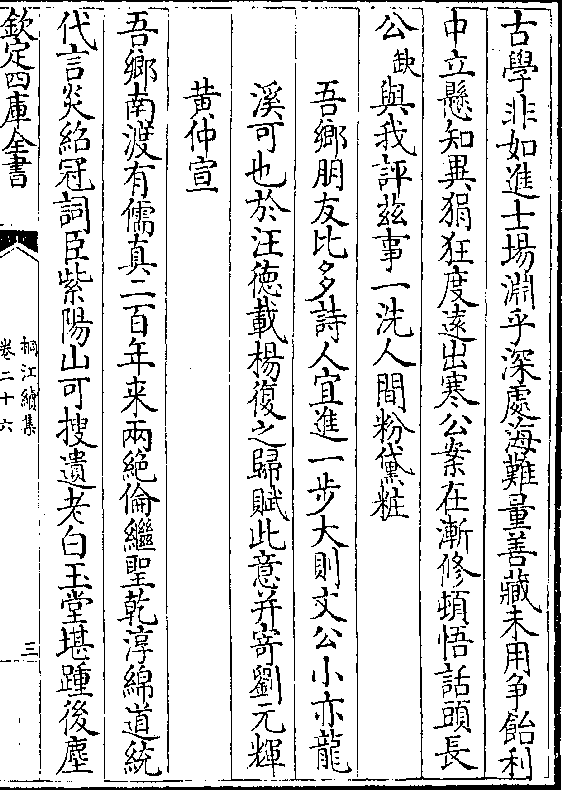 古學非如進士場淵乎深處海難量善藏未用爭飴利
中立懸知異狷狂度遠出寒公案在漸修頓悟話頭長
公缺與我評茲事一洗人間粉黛粧
吾鄉朋友比多詩人宜進一步大則文公小亦龍
溪可也於汪德載楊復之歸賦此意并寄劉元輝
黄仲宣
吾鄉南渡有儒真二百年来兩絶倫繼聖乾淳綿道統
代言炎紹冠詞臣紫陽山可搜遺老白玉堂堪踵後塵
欽定四庫全書
桐江續集
卷二十六
三